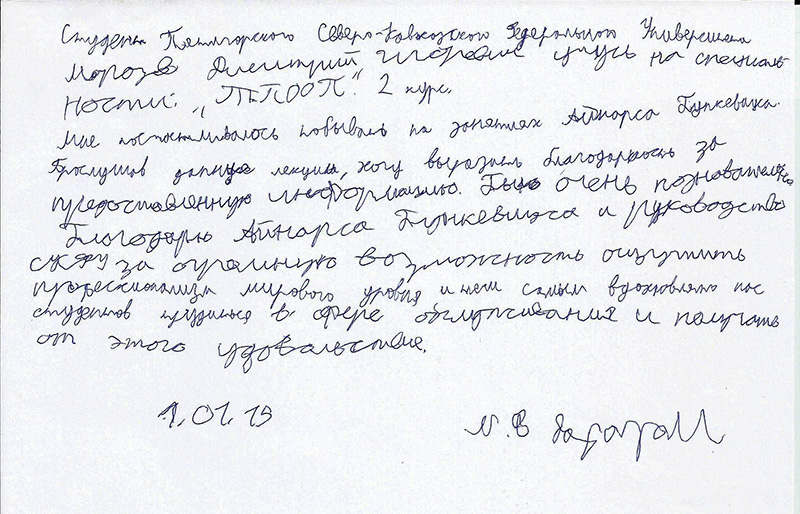 Студент Пятигорского Северо-Кавказского Федерального Университета
Морозов Дмитрий Игоревич учусь на специаль-
ности: „ТПООП". 2 курс.
Мне посчастливилось побывать на занятиях Айнарса Бункевица.
Прослушав данную лекцию, хочу выразить благодарность за
предоставленную информацию. Было очень познавательно
Благодарю Айнарса Бункевицса и руководство
СКФУ за огромную возможность ощутить
профессионализм мирового уровня и тем самым вдохновлять нас
студентов трудиться в сфере обслуживания и получать
от этого удовольствие.
1.01.19